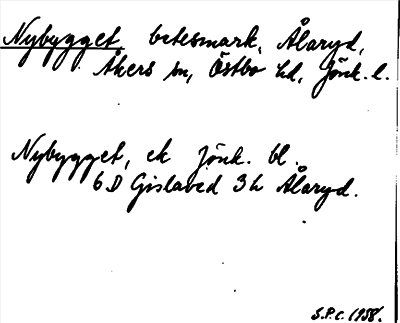 Nybygget betesmark, Ålaryd,
Åkers sn, Östbo hd, Jönk. l.
Nybygget, ek Jönk. bl.
6D Gislaved 3h Ålaryd.
S.P.C. 1958.